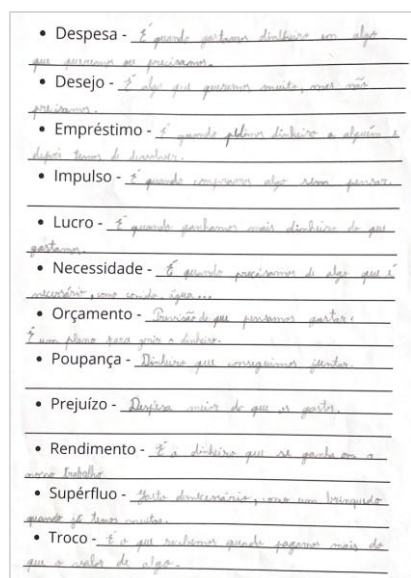 • Despesa - É quando gastamos dinheiro em algo
que queremos ou precisamos.
• Desejo - É algo que queremos muito, mas não
precisamos.
• Empréstimo - É quando pedimos dinheiro a alguém e
depois temos de devolver.
• Impulso - É quando compramos algo sem pensar.
• Lucro - É quando ganhamos mais dinheiro do que
gastamos.
• Necessidade - É quando precisamos de algo que é
necessário, como comida, água...
• Orçamento - Previsão do que pensamos gastar.
É um plano para gerir o dinheiro.
• Poupança - Dinheiro que conseguimos juntar.
• Prejuízo - Despesa maior do que os gastos.
• Rendimento - É o dinheiro que se ganha com o
nosso trabalho
• Supérfluo - Gasto desnecessário, como um brinquedo
quando já temos muitos.
• Troco - É o que recebemos quando pagamos mais do
que o valor de algo.